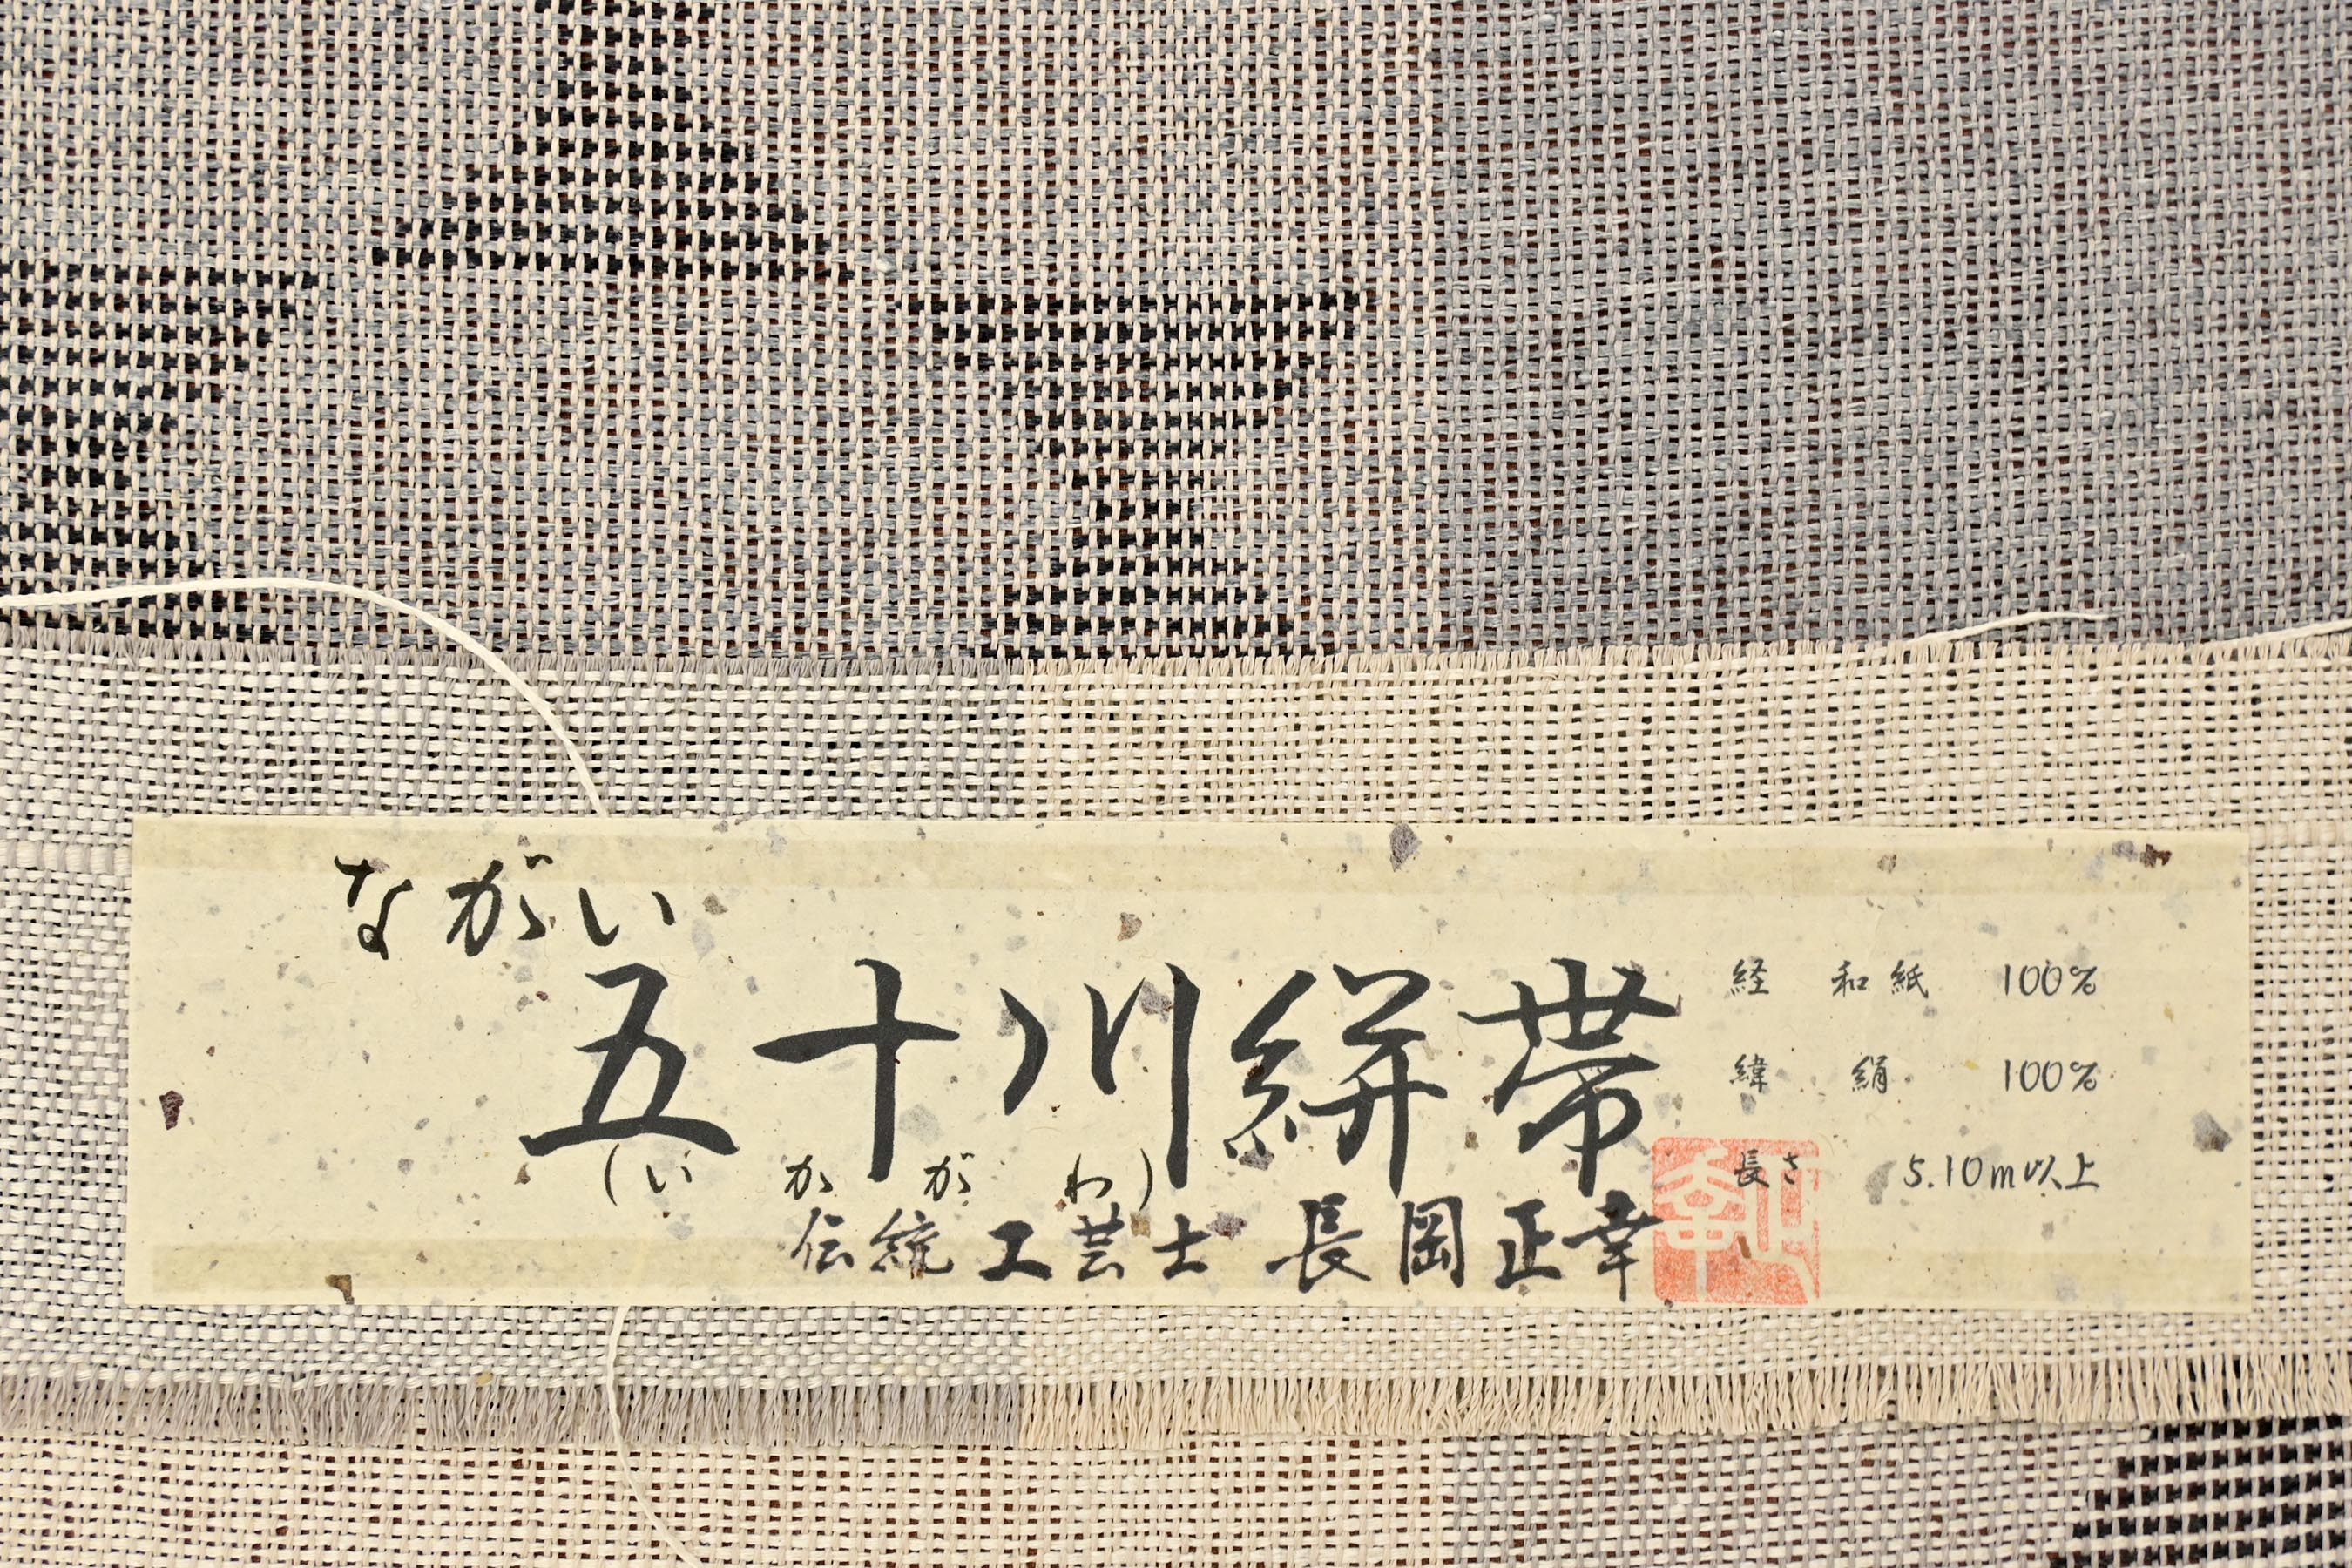 ながい
五十川絣帯
(いかがわ)
伝統工芸士 長岡正幸
経 和紙 100%
緯 絹 100%
長さ 5.10m以上
正幸